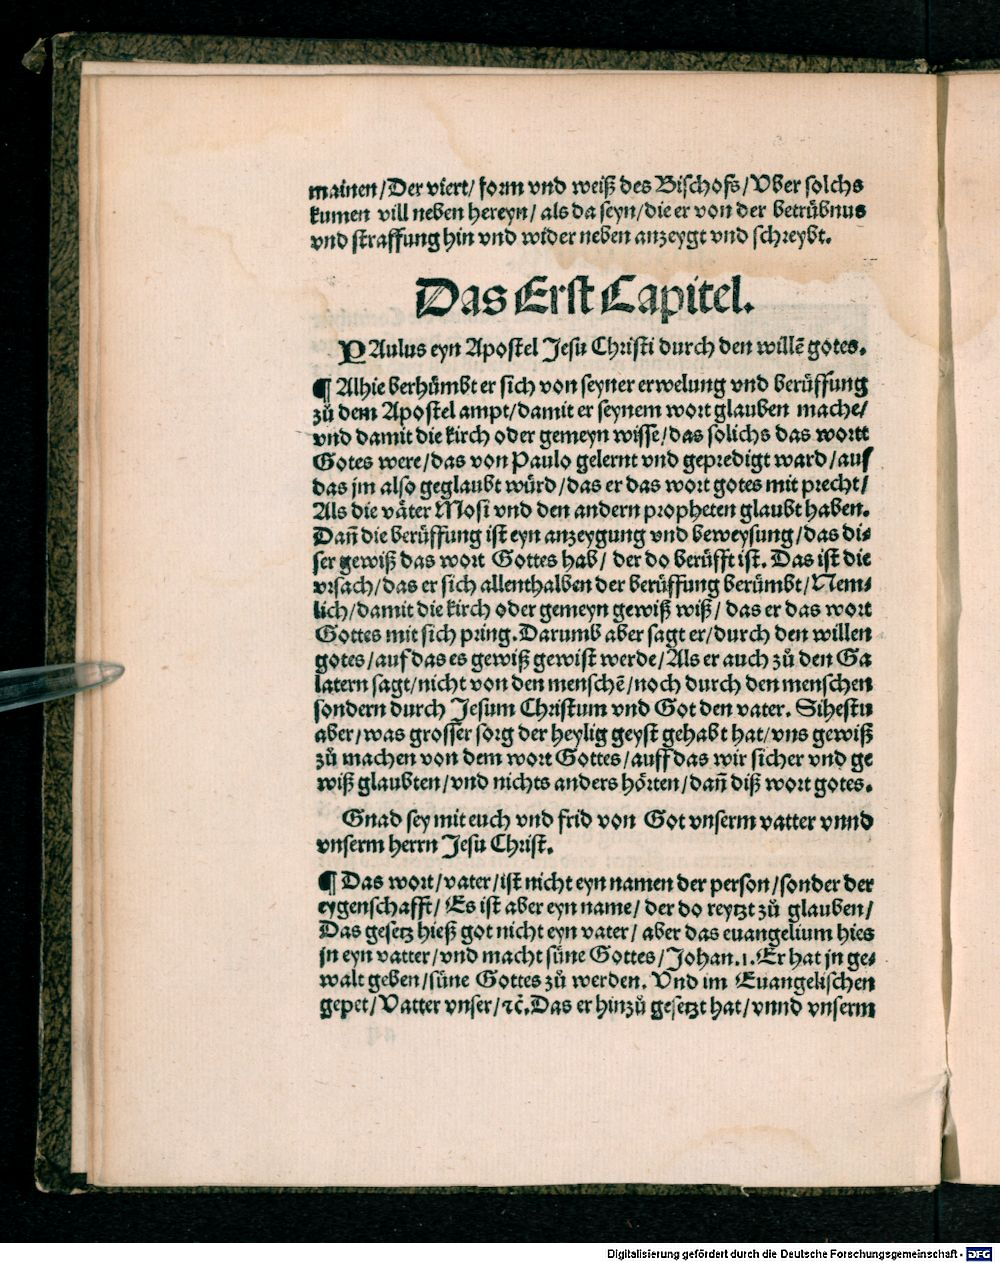 mainen/Der viert/ form vnd weiß des Bischofs/Vber solchs
kumen vill neben hereyn/ als da seyn/die er von der betrübnus
vnd straffung hin vnd wider neben anzeygt vnd schreybt.
Das Erst Capitel.
PAulus eyn Apostel Jesu Christi durch den willē gotes.
¶ Alhie berhümbt er sich von seyner erwelung vnd berüffung
zů dem Apostel ampt/damit er seynem wort glauben mache/
vnd damit die kirch oder gemeyn wisse/das solichs das wortt
Gotes were/das von Paulo gelernt vnd gepredigt ward/auf
das jm also geglaubt würd/das er das wort gotes mit precht/
Als die väter Mosi vnd den andern propheten glaubt haben.
Dañ die berüffung ist eyn anzeygung vnd beweysung/das di-
ser gewiß das wort Gottes hab/ der do berüfft ist. Das ist die
vrsach/das er sich allenthalben der berüffung berümbt/Nem-
lich/damit die kirch oder gemeyn gewiß wiß/ das er das wort
Gottes mit sich pring.Darumb aber sagt er/durch den willen
gotes/auf das es gewiß gewist werde/Als er auch zů den Ga
latern sagt/nicht von den menschē/noch durch den menschen
sondern durch Jesum Christum vnd Got den vater. Sihestu
aber/was grosser sorg der heylig geyst gehabt hat/vns gewiß
zů machen von dem wort Gottes/auff das wir sicher vnd ge
wiß glaubten/vnd nichts anders hörten/dañ diß wort gotes.
Gnad sey mit euch vnd frid von Got vnserm vatter vnnd
vnserm herrn Jesu Christ.
¶ Das wort/vater/ist nicht eyn namen der person/sonder der
eygenschafft/ Es ist aber eyn name/ der do reytzt zů glauben/
Das gesetz hieß got nicht eyn vater/ aber das euangelium hies
jn eyn vatter/vnd macht süne Gottes/Johan.1.Er hat jn ge-
walt geben/süne Gottes zů werden. Vnd im Euangelischen
gepet/Vatter vnser/ꝛč.Das er hinzů gesetzt hat/vnnd vnserm
Digitalisierung gefördert durch die Deutsche Forschungsgemeinschaft - DFG